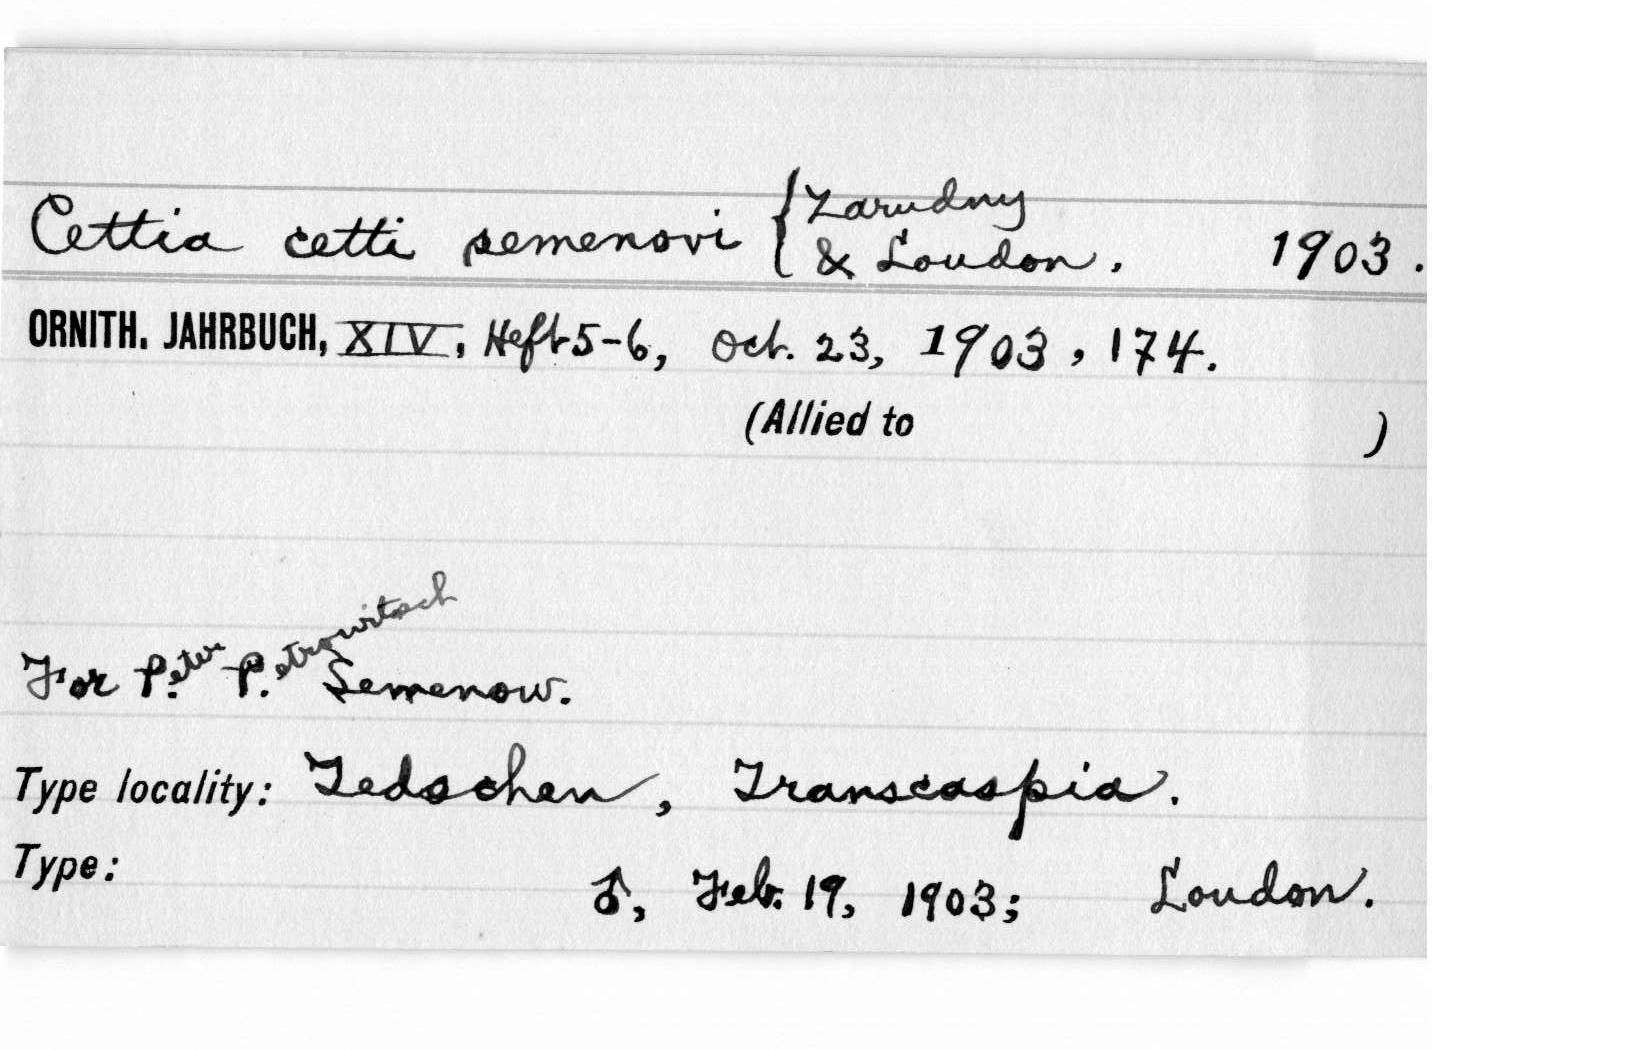 Cettia cetti semenovi { Zarudny
& Loudon. 1903.
ORNITH. JAHRBUCH, XIV, Heft 5-6, Oct. 23, 1903, 174.
(Allied to )
For P.eter P.etrowitsch Semenow.
Type locality: Tedschen, Transcaspia.
Type: ♂, Feb. 19, 1903; Loudon.